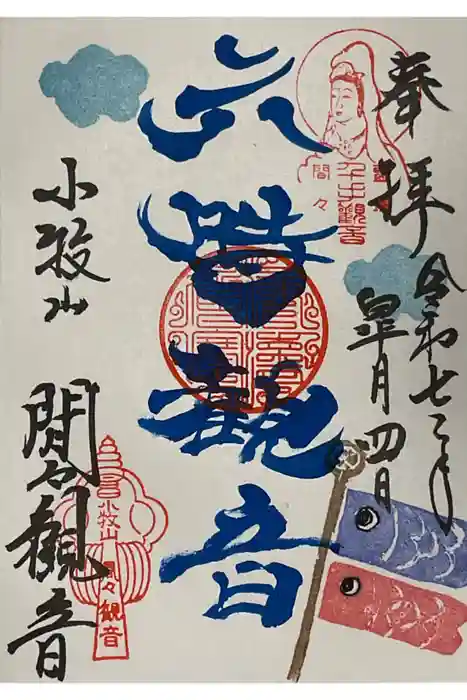 奉拝
令和七年
皐月四日
六時観音
小牧山
間々観音
間々
小牧山
間々観音